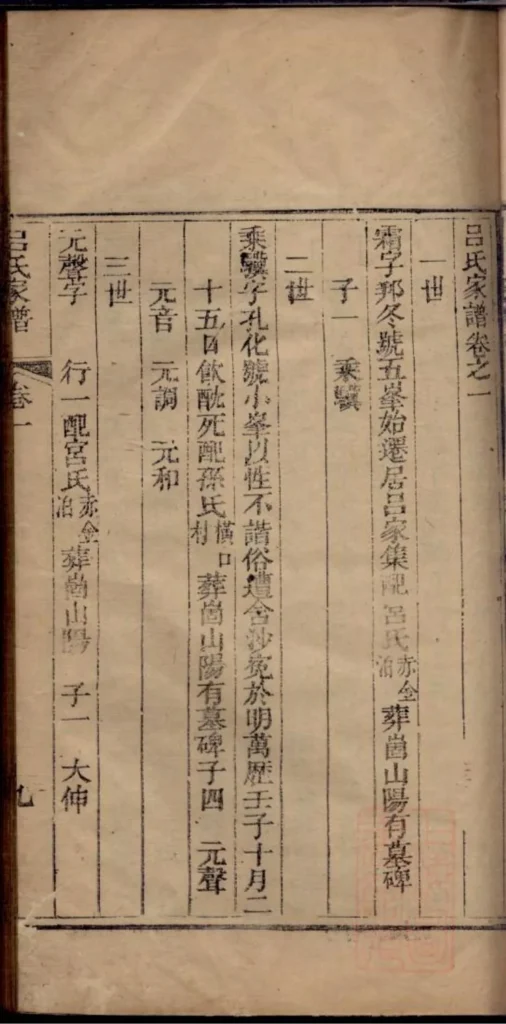 呂氏家譜卷之一
一世
霜字邦冬號五峯始遷居呂家集配宮氏赤金冶葬崮山陽有墓碑
子一 乘驥
二世
乘驥字孔化號小峯以性不諧俗遭含沙冤於明萬歷壬子十月二
十五日飲酖死配孫氏橫口村葬崮山陽有墓碑子四 元聲
元音 元調 元和
三世
元聲字 行一配宮氏赤金冶葬崮山陽 子一 大仲
呂氏家譜 卷一 九